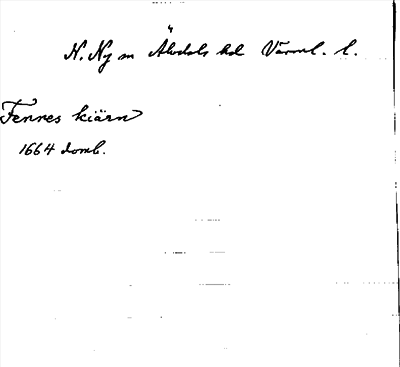 N. Ny sn Älvdals hd Värml. l.
Fennes kiärn
1664 domb.